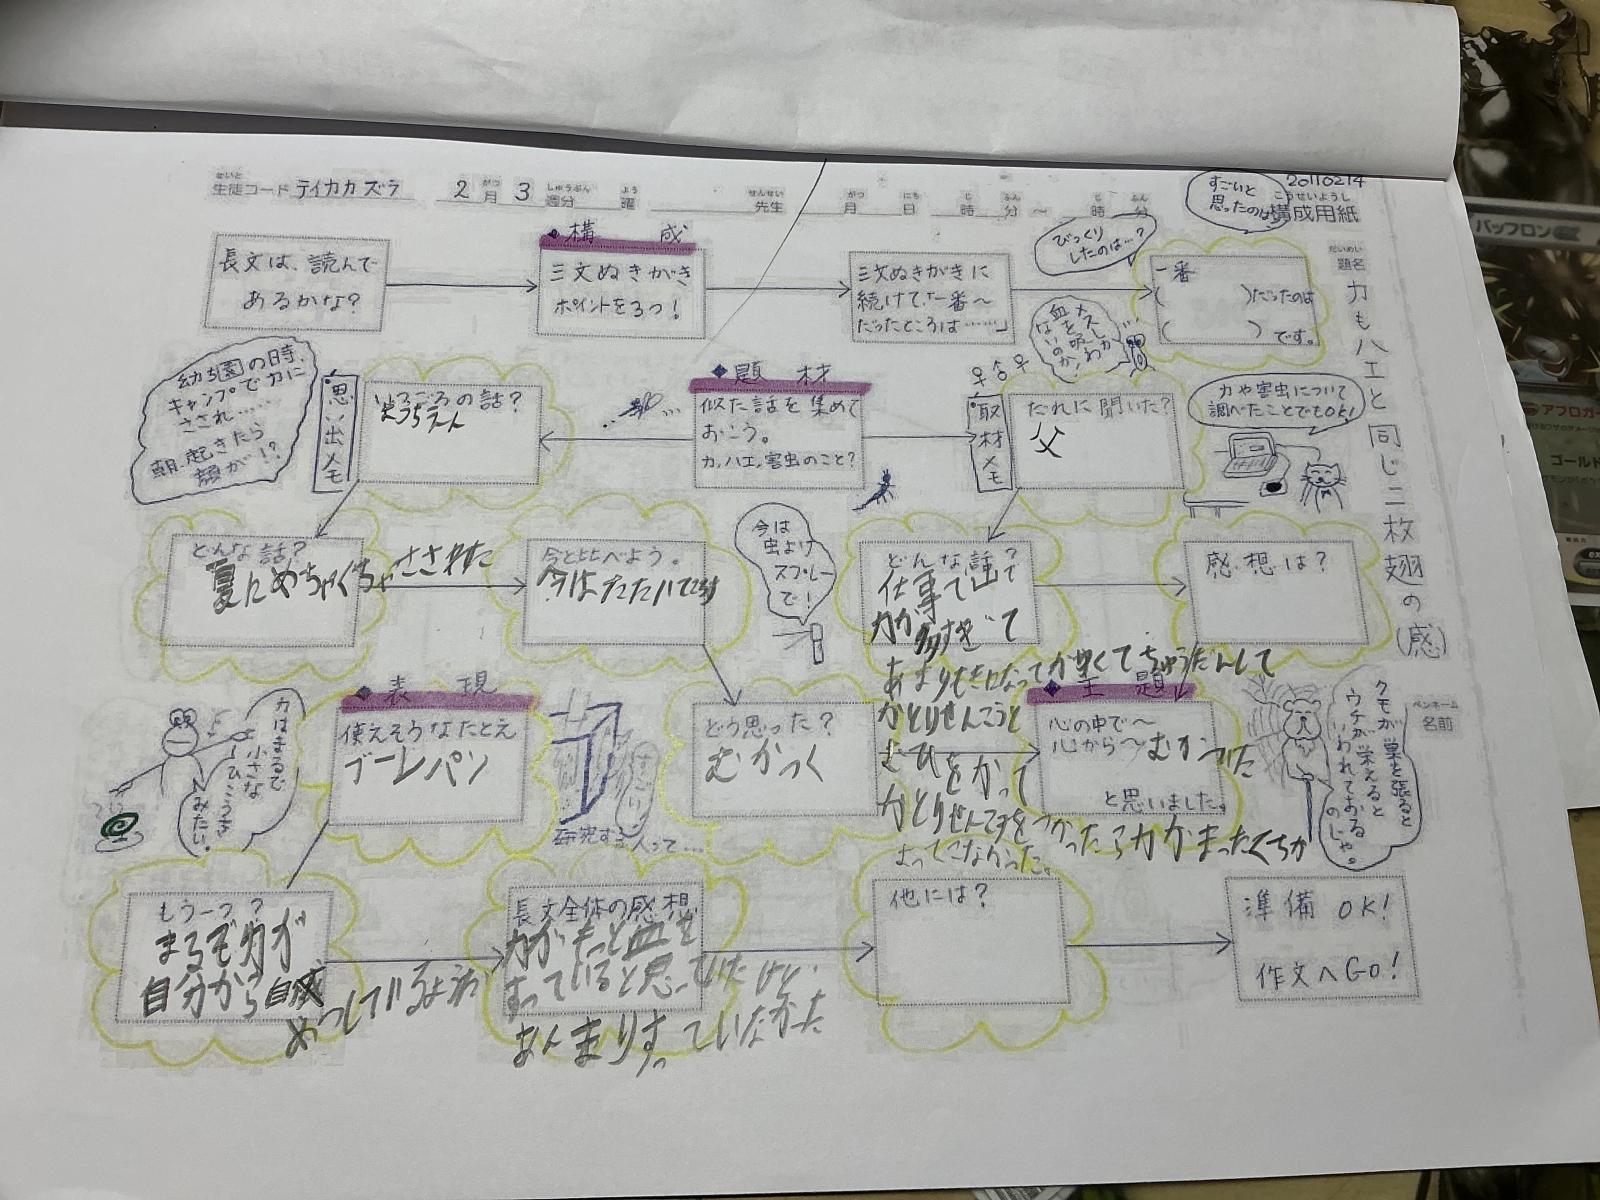 生徒コード テイカカズラ 2月3週分 曜 先生 月 日 時 分 〜 時 分
20110214
構成用紙
題名
カもハエと同じ二枚翅の(感)
ペンネーム
名前
長文は、読んで
あるかな?
◆構 成
三文ぬきがき
ポイントを3つ!
三文ぬきがきに
続けて、「一番〜
だったところは……」
びっくり
したのは…?
すごいと
思ったのは
一番
( )だったのは
( )です。
幼ち園の時、
キャンプでカに
さされ……
朝、起きたら
顔が!?
思い出メモ
いつごろの話?
ようちえん
◆題 材
似た話を集めて
おこう。
カ、ハエ、害虫のこと?
取材メモ
だれに聞いた?
父
メスしか
血を吸わ
ないのか!
カや害虫について
調べたことでもOK!
どんな話?
夏にめちゃくちゃさされた
今と比べよう。
今はたたいてころす
今は
虫よけ
スプレー
で!
どんな話?
仕事で山で
カが多すぎて
かとりせんこうと
むひをかって
よってこなかった。
感想は?
カはまるで
小さな
ひこうき
みたい。
◆表 現
使えそうなたとえ
研究する人って…
どう思った?
むかつく
◆主 題
心の中で〜
心から〜むかついた
と思いました。
クモが巣を張ると
ウチが栄えると
いわれておる
のじゃ。
もう一つ?
まるでカが
自分から自滅
めつしているようだ
長文全体の感想
カがもっと血を
すっていると思っていたけど、
あんまりすっていなかった
他には?
準備OK!
作文へGO!
バッフロン
アフロガ
ゴールド